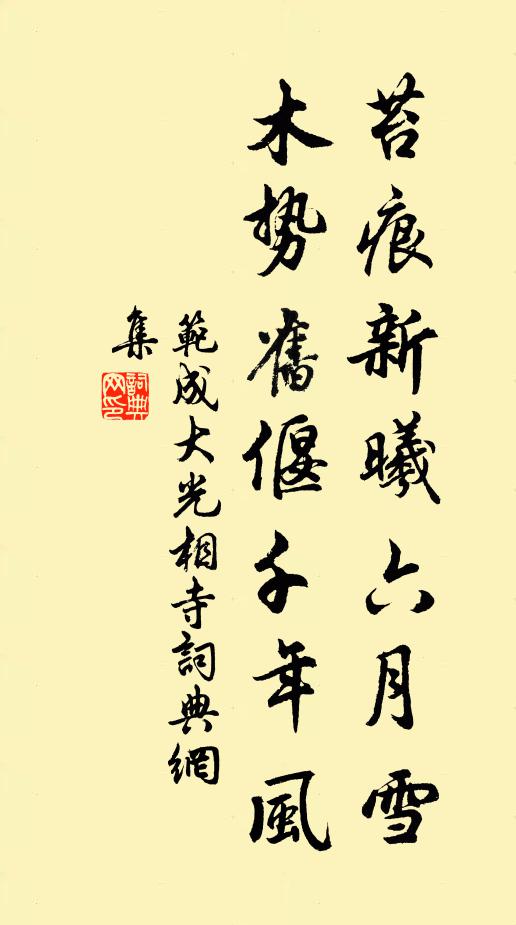 苔痕新曦六月雪
木势舊偃千年風
範成大光相寺詞典網
集
詞典網印